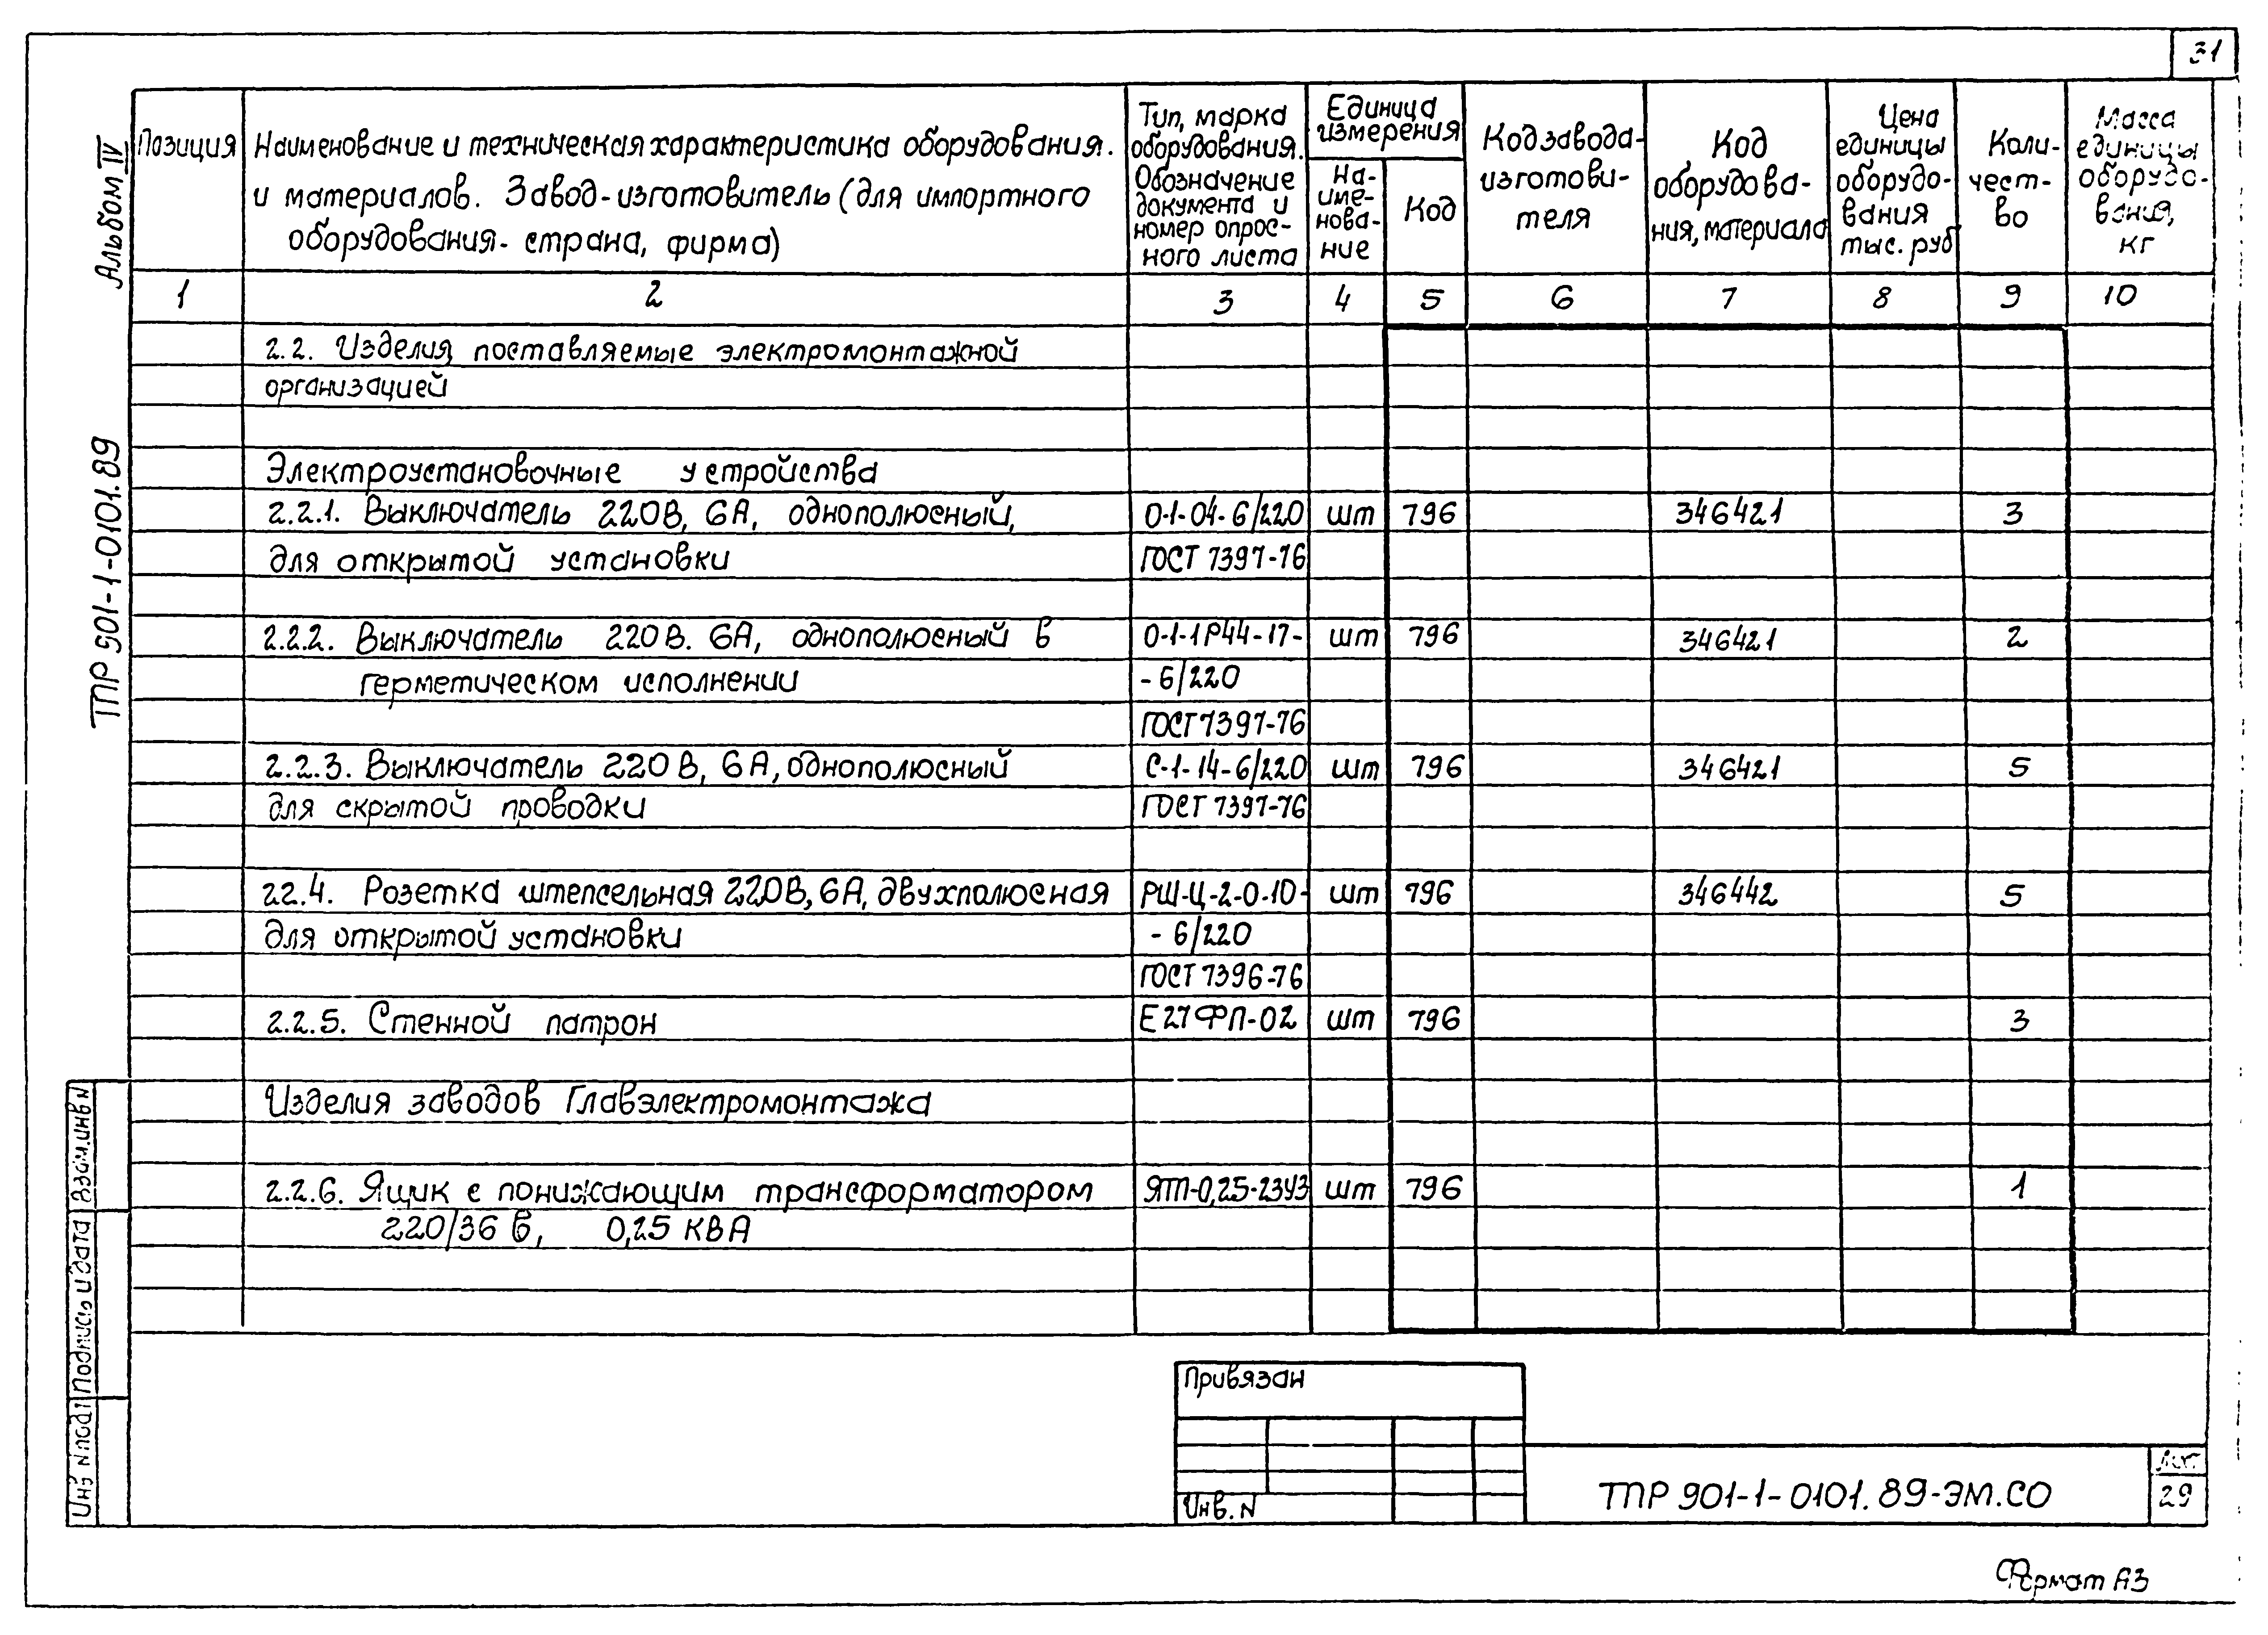 31
Альбом IV
ТПР 901-1-0101.89
Позиция
Наименование и техническая характеристика оборудования.
и материалов. Завод-изготовитель (для импортного
оборудования- страна, фирма)
Тип, марка
оборудования.
Обозначение
документа и
номер опрос-
ного листа
Единица
измерения
На-
име-
нова-
ние
Код
Код завода-
изготови-
теля
Код
оборудова-
ния, материала
Цена
единицы
оборудо-
вания
тыс. руб
Коли-
чест-
во
Масса
единицы
оборудо-
вания,
кг
1 2 3 4 5 6 7 8 9 10
2.2. Изделия поставляемые электромонтажной
организацией
Электроустановочные устройства
2.2.1. Выключатель 220В, 6А, однополюсный, О-1-04-6/220 шт 796 346421 3
для открытой установки ГОСТ 7397-76
2.2.2. Выключатель 220В. 6А, однополюсный в О-1-1Р44-17- шт 796 346421 2
герметическом исполнении - 6/220
ГОСТ 7397-76
2.2.3. Выключатель 220В, 6А, однополюсный С-1-14-6/220 шт 796 346421 5
для скрытой проводки ГОСТ 7397-76
22.4. Розетка штепсельная 220В, 6А, двухполюсная РШ-Ц-2-0-10- шт 796 346442 5
для открытой установки - 6/220
ГОСТ 7396-76
2.2.5. Стенной патрон Е27ФП-02 шт 796 3
Изделия заводов Главэлектромонтажа
2.2.6. Ящик с понижающим трансформатором ЯТП-0,25-23У3 шт 796 1
220/36 В, 0,25 КВА
Взам.инв N
Подпись и дата
Инв N подл
Привязан
Инв. N
ТПР 901-1-0101.89-ЭМ.СО
Лист
29
Формат А3